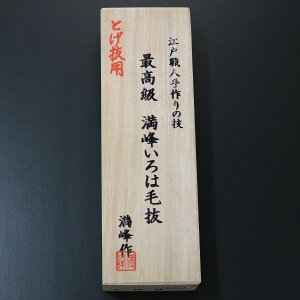 江戸職人手作りの技
最高級 満峰いろは毛抜
満峰作
とげ抜用